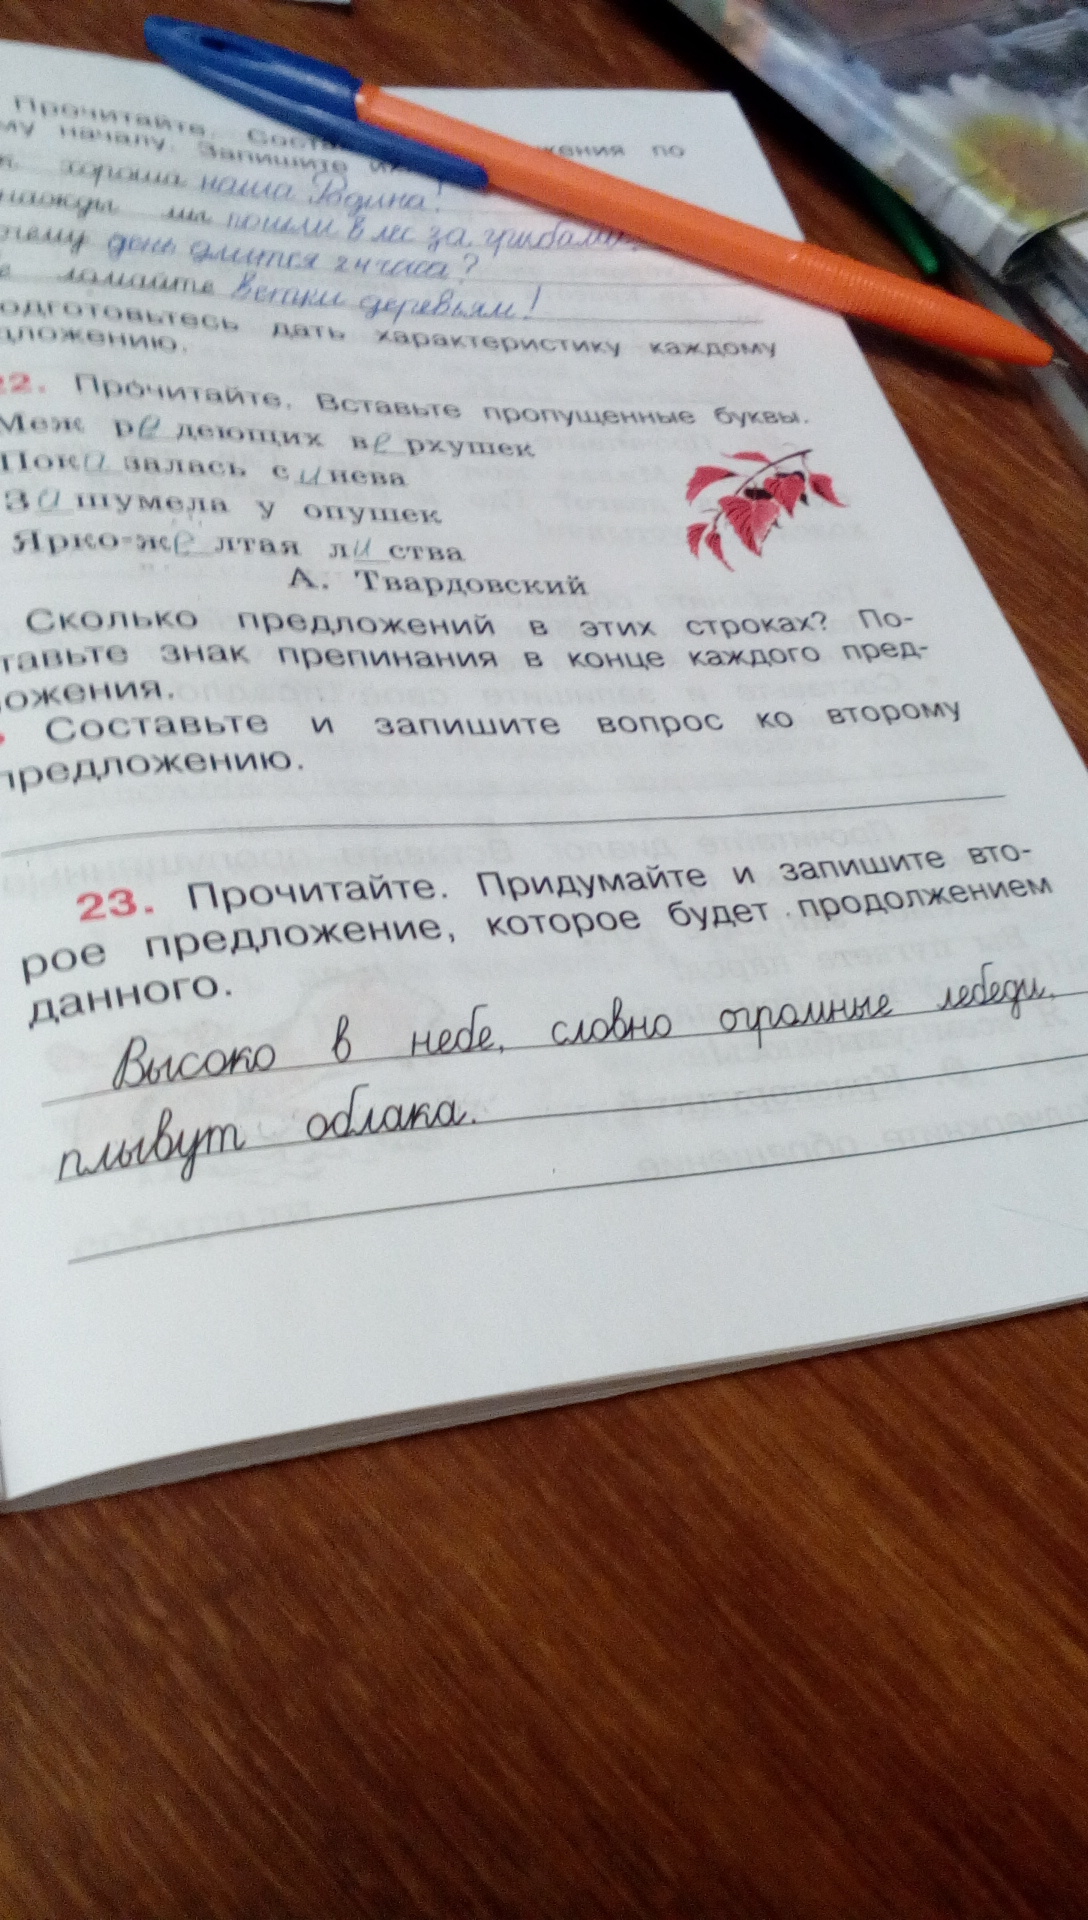 Прочитайте.
му началу. Запишите их
хороша наша Родина!
мы пошли в лес за грибами.
день длится 24 часа?
ломайте ветки деревьям!
одготовьтесь дать характеристику каждому
дложению.
22. Прочитайте. Вставьте пропущенные буквы.
Меж ре деющих ве рхушек
Пока залась си нева
За шумела у опушек
Ярко-же лтая ли ства
А. Твардовский
Сколько предложений в этих строках? По-
тавьте знак препинания в конце каждого пред-
ожения.
Составьте и запишите вопрос ко второму
предложению.
23. Прочитайте. Придумайте и запишите вто-
рое предложение, которое будет продолжением
данного.
Высоко в небе, словно огромные лебеди,
плывут облака.